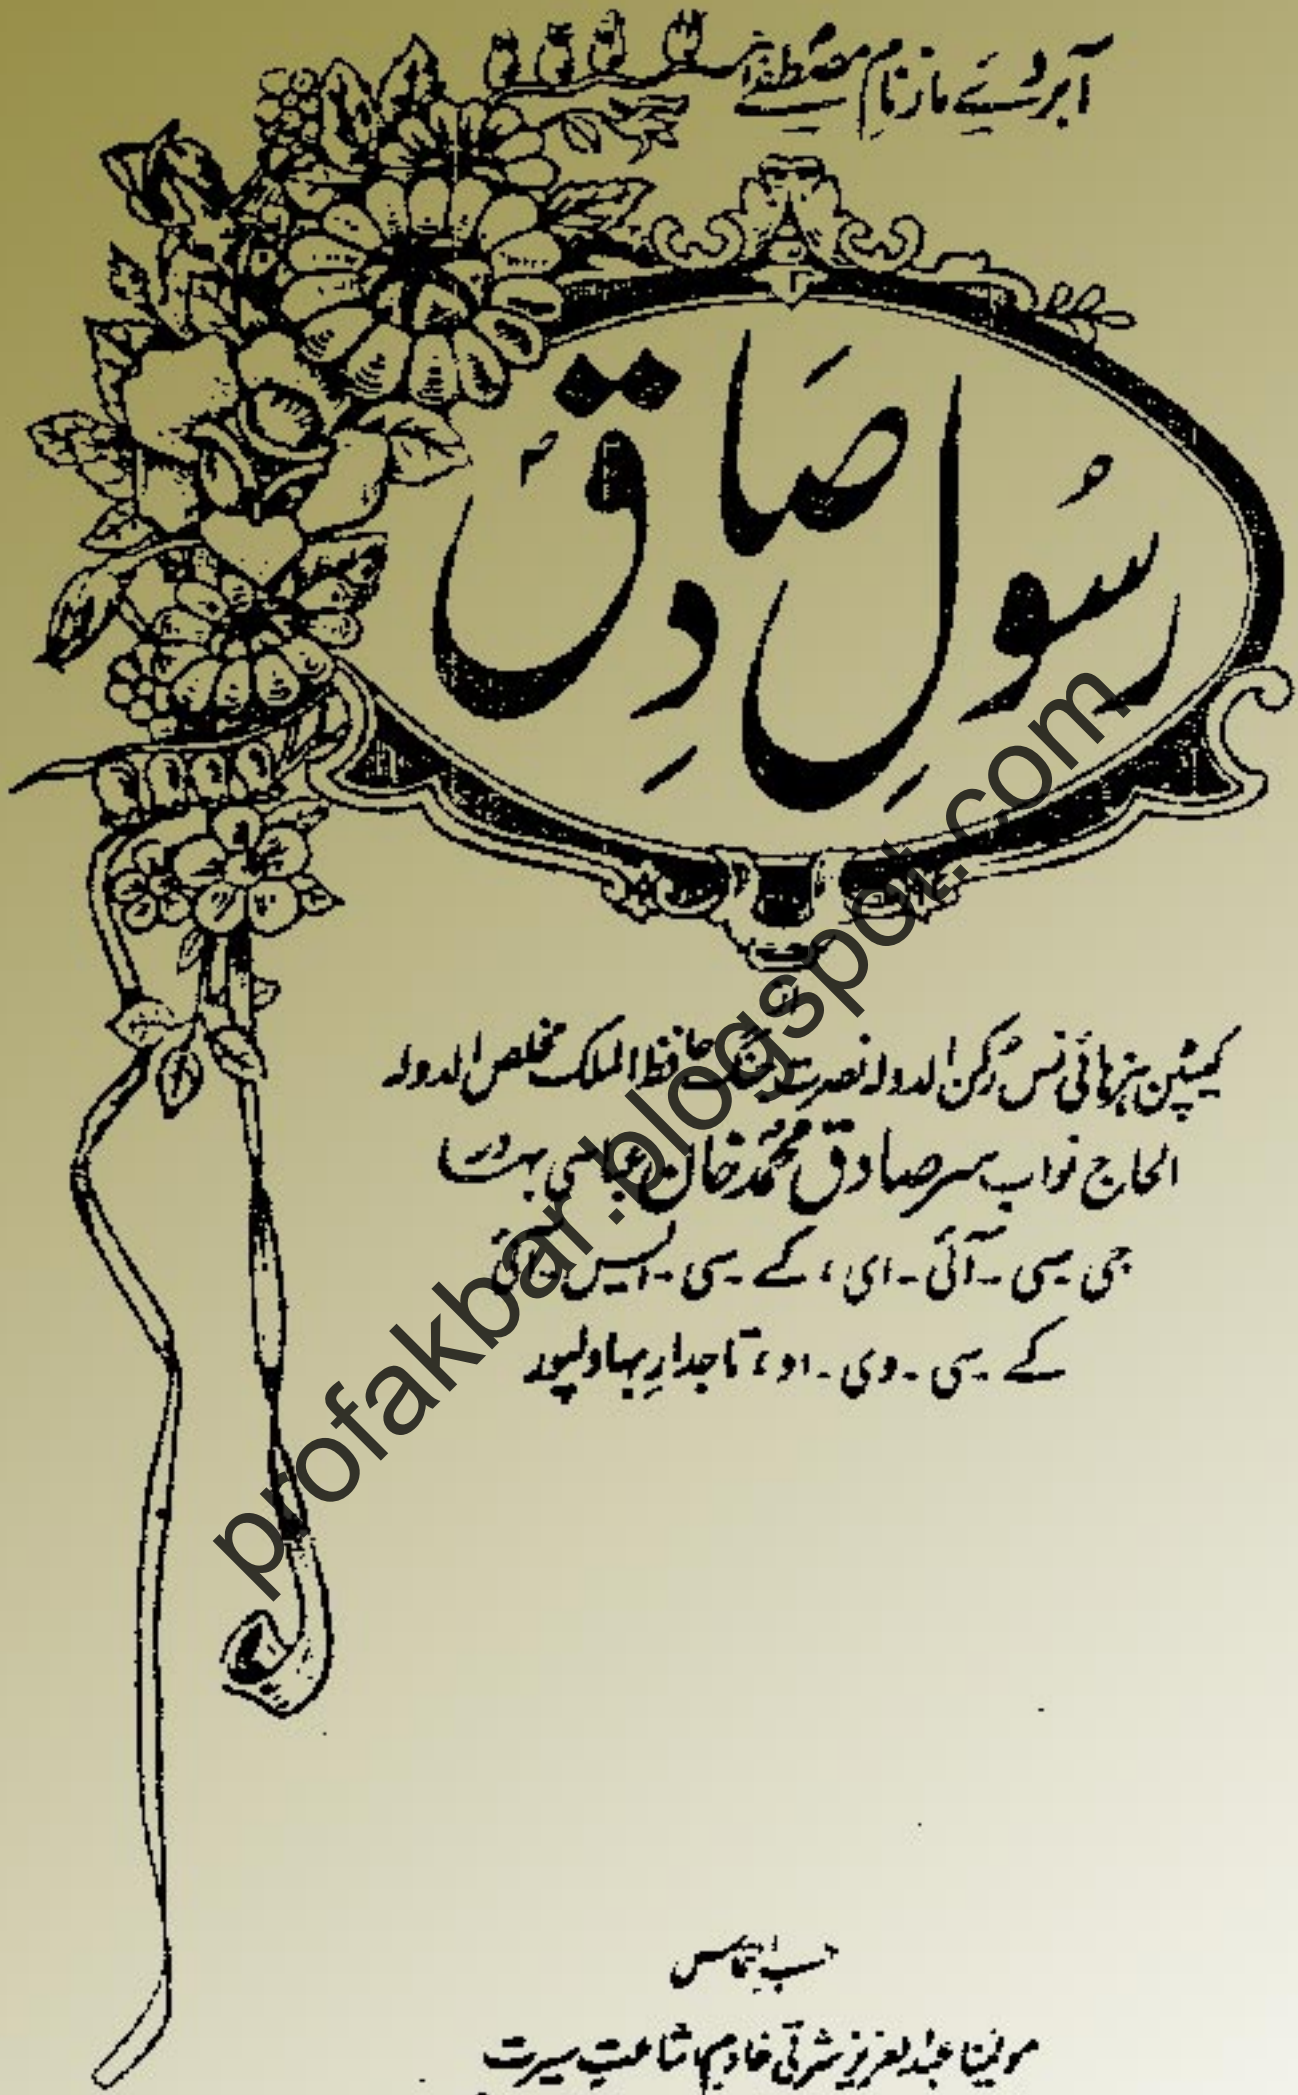 آبروئے ما ز نام مصطفےٰ است
رسُولِ صَادِق
از
کیپٹن ہزہائی نس رُکن الدولہ نصرت جنگ حافظ الملک مخلص الدولہ
الحاج نواب سر صادق محمّد خان عباسی بہادر
جی ۔ سی ۔ آئی ۔ ای، کے ۔ سی ۔ ایس ۔ آئی
کے ۔ سی ۔ وی ۔ او، تاجدارِ بہاولپور
حسب التماس
مولینا عبدالعزیز شرقی خادم اشاعتِ سیرت
profakbar.blogspot.com